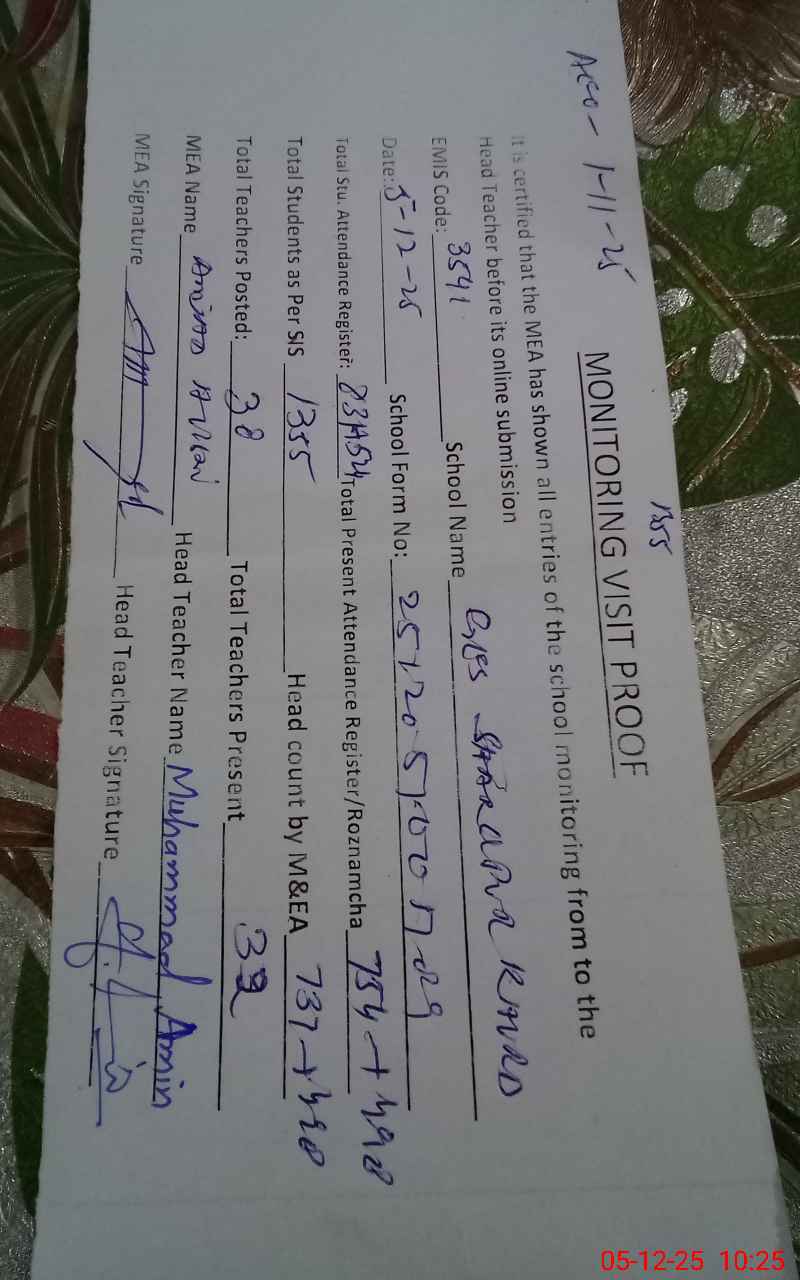 1355
Acc- 1-11-25
MONITORING VISIT PROOF
It is certified that the MEA has shown all entries of the school monitoring from to the
Head Teacher before its online submission
EMIS Code: 3541 School Name GHS KHURD
Date: 5-12-25 School Form No:
Total Stu. Attendance Register: Total Present Attendance Register/Roznamcha 754 + 498
Total Students as Per SIS 1355 Head count by M&EA 737 + 498
Total Teachers Posted: 38 Total Teachers Present
MEA Name Head Teacher Name Muhammad Amin
MEA Signature Head Teacher Signature
05-12-25 10:25